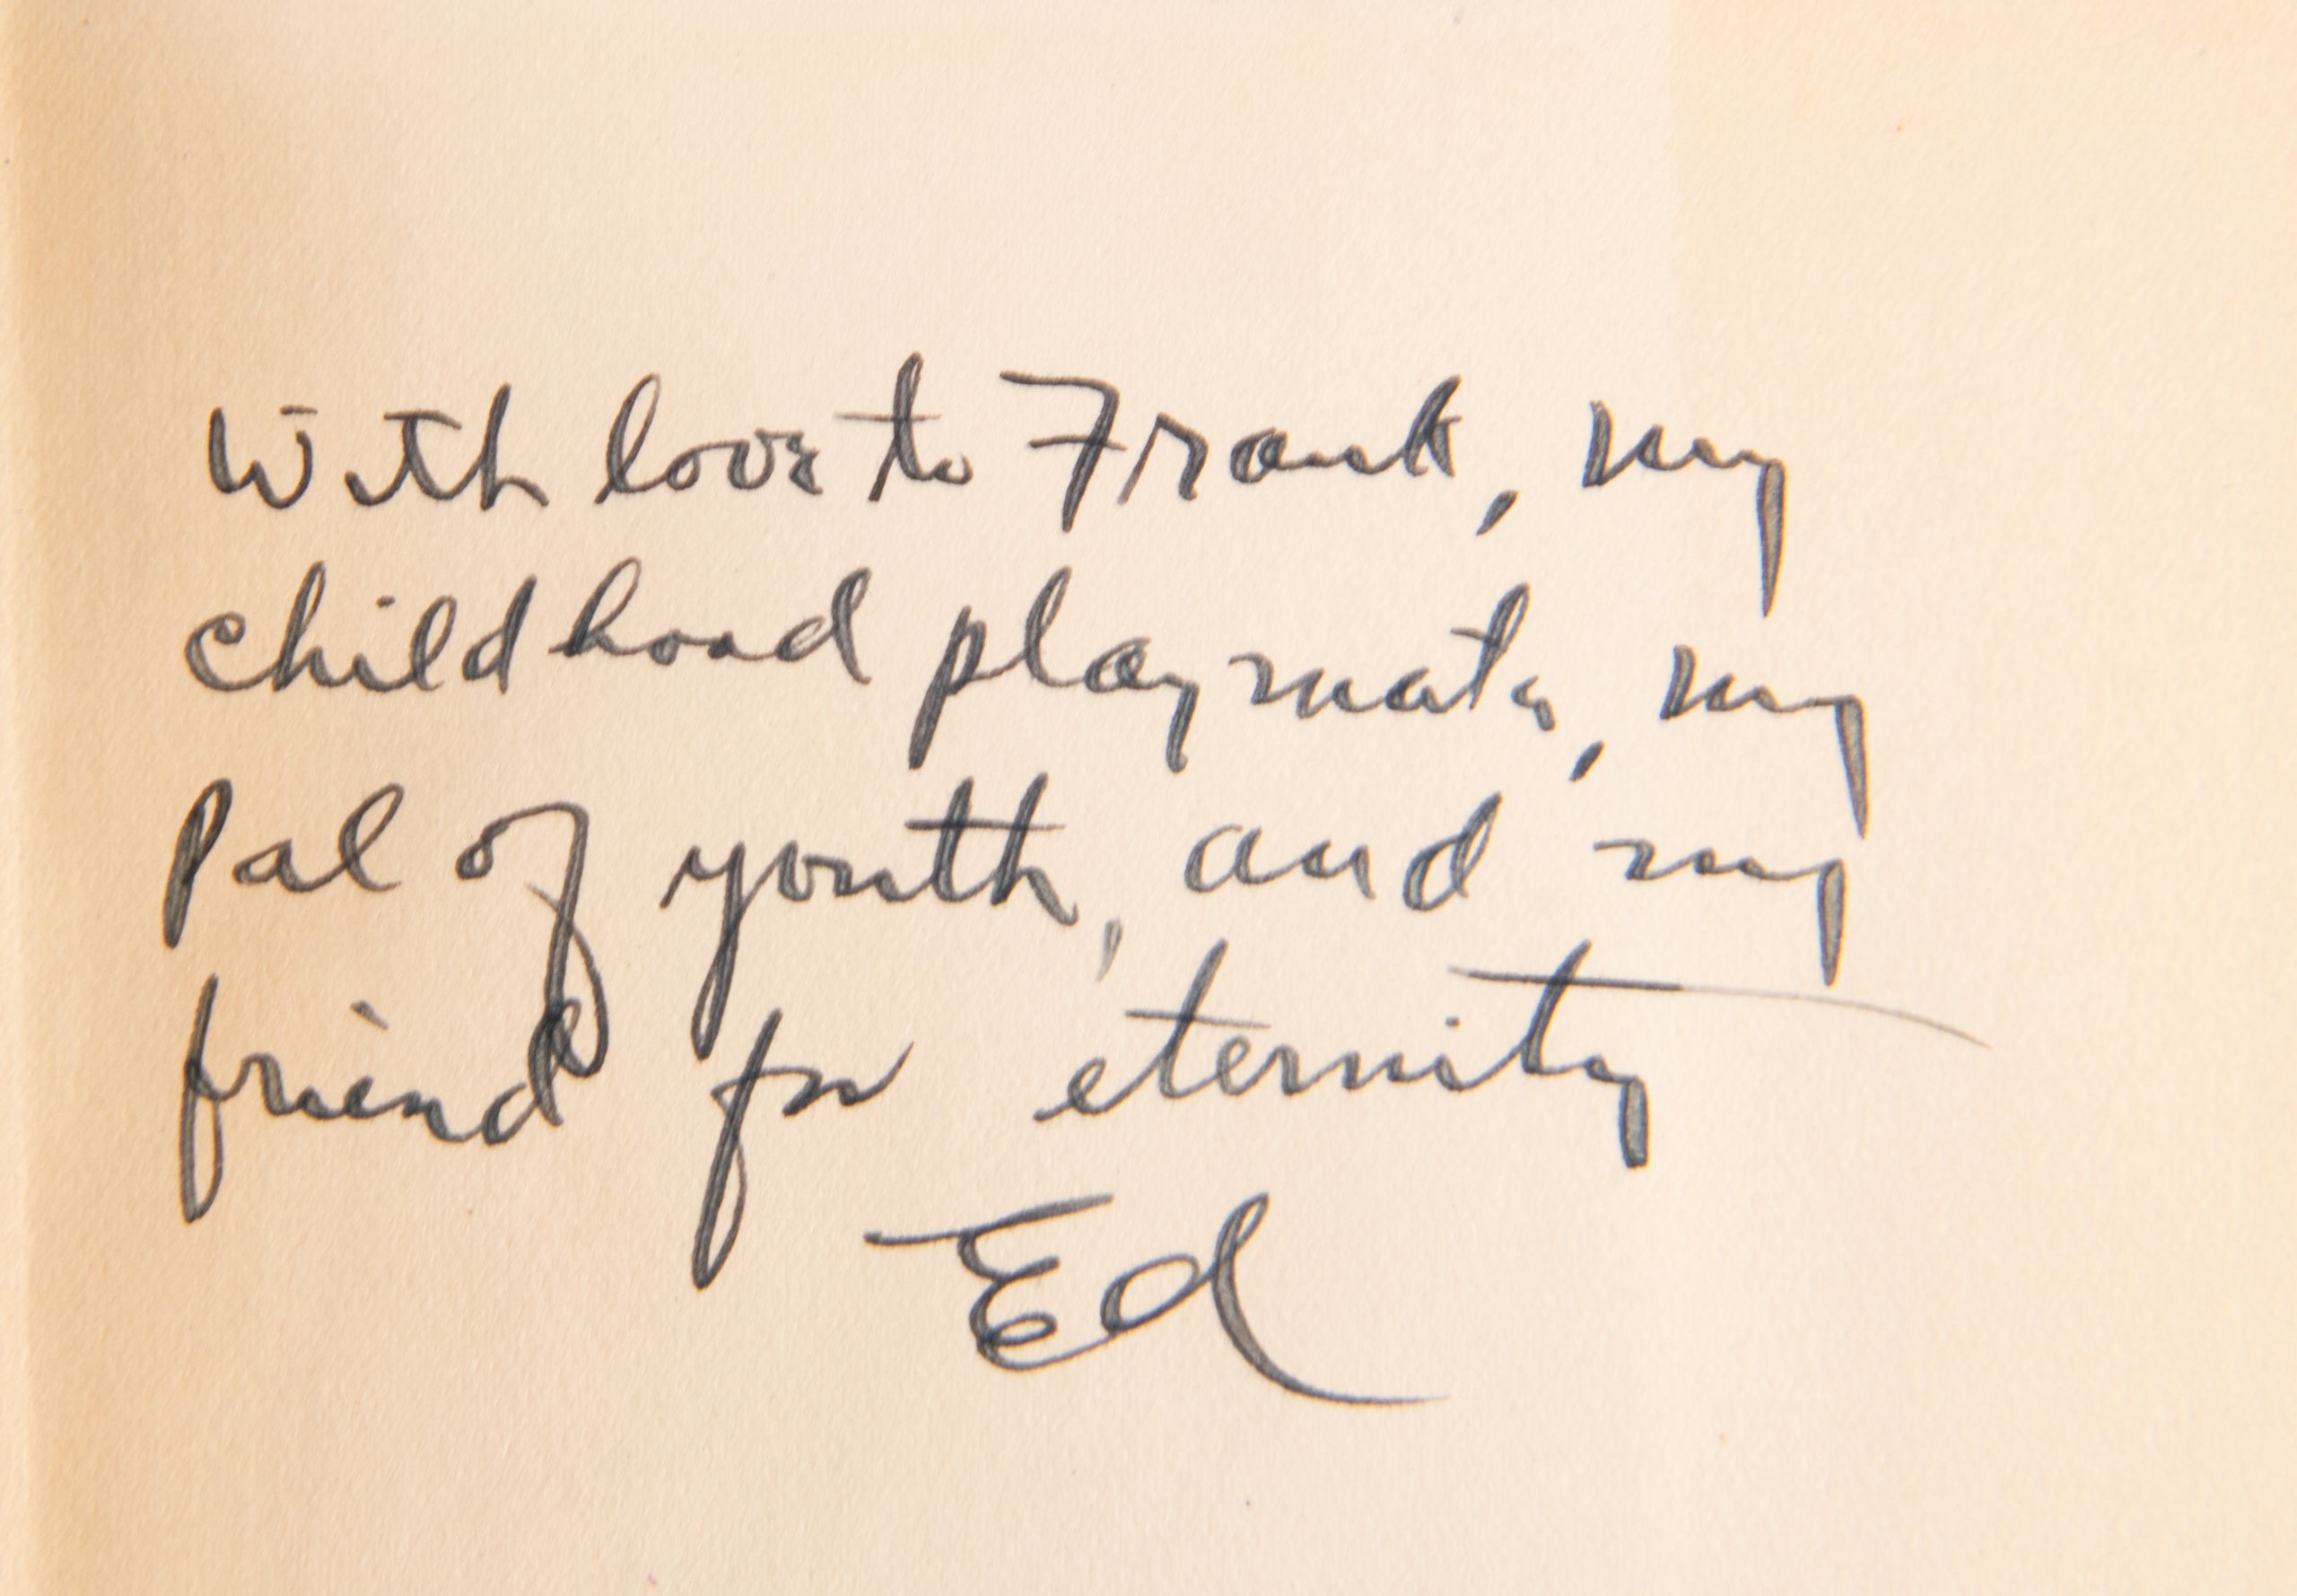 With love to Frank, my
childhood playmate, my
pal of youth, and my
friend for eternity
Ed